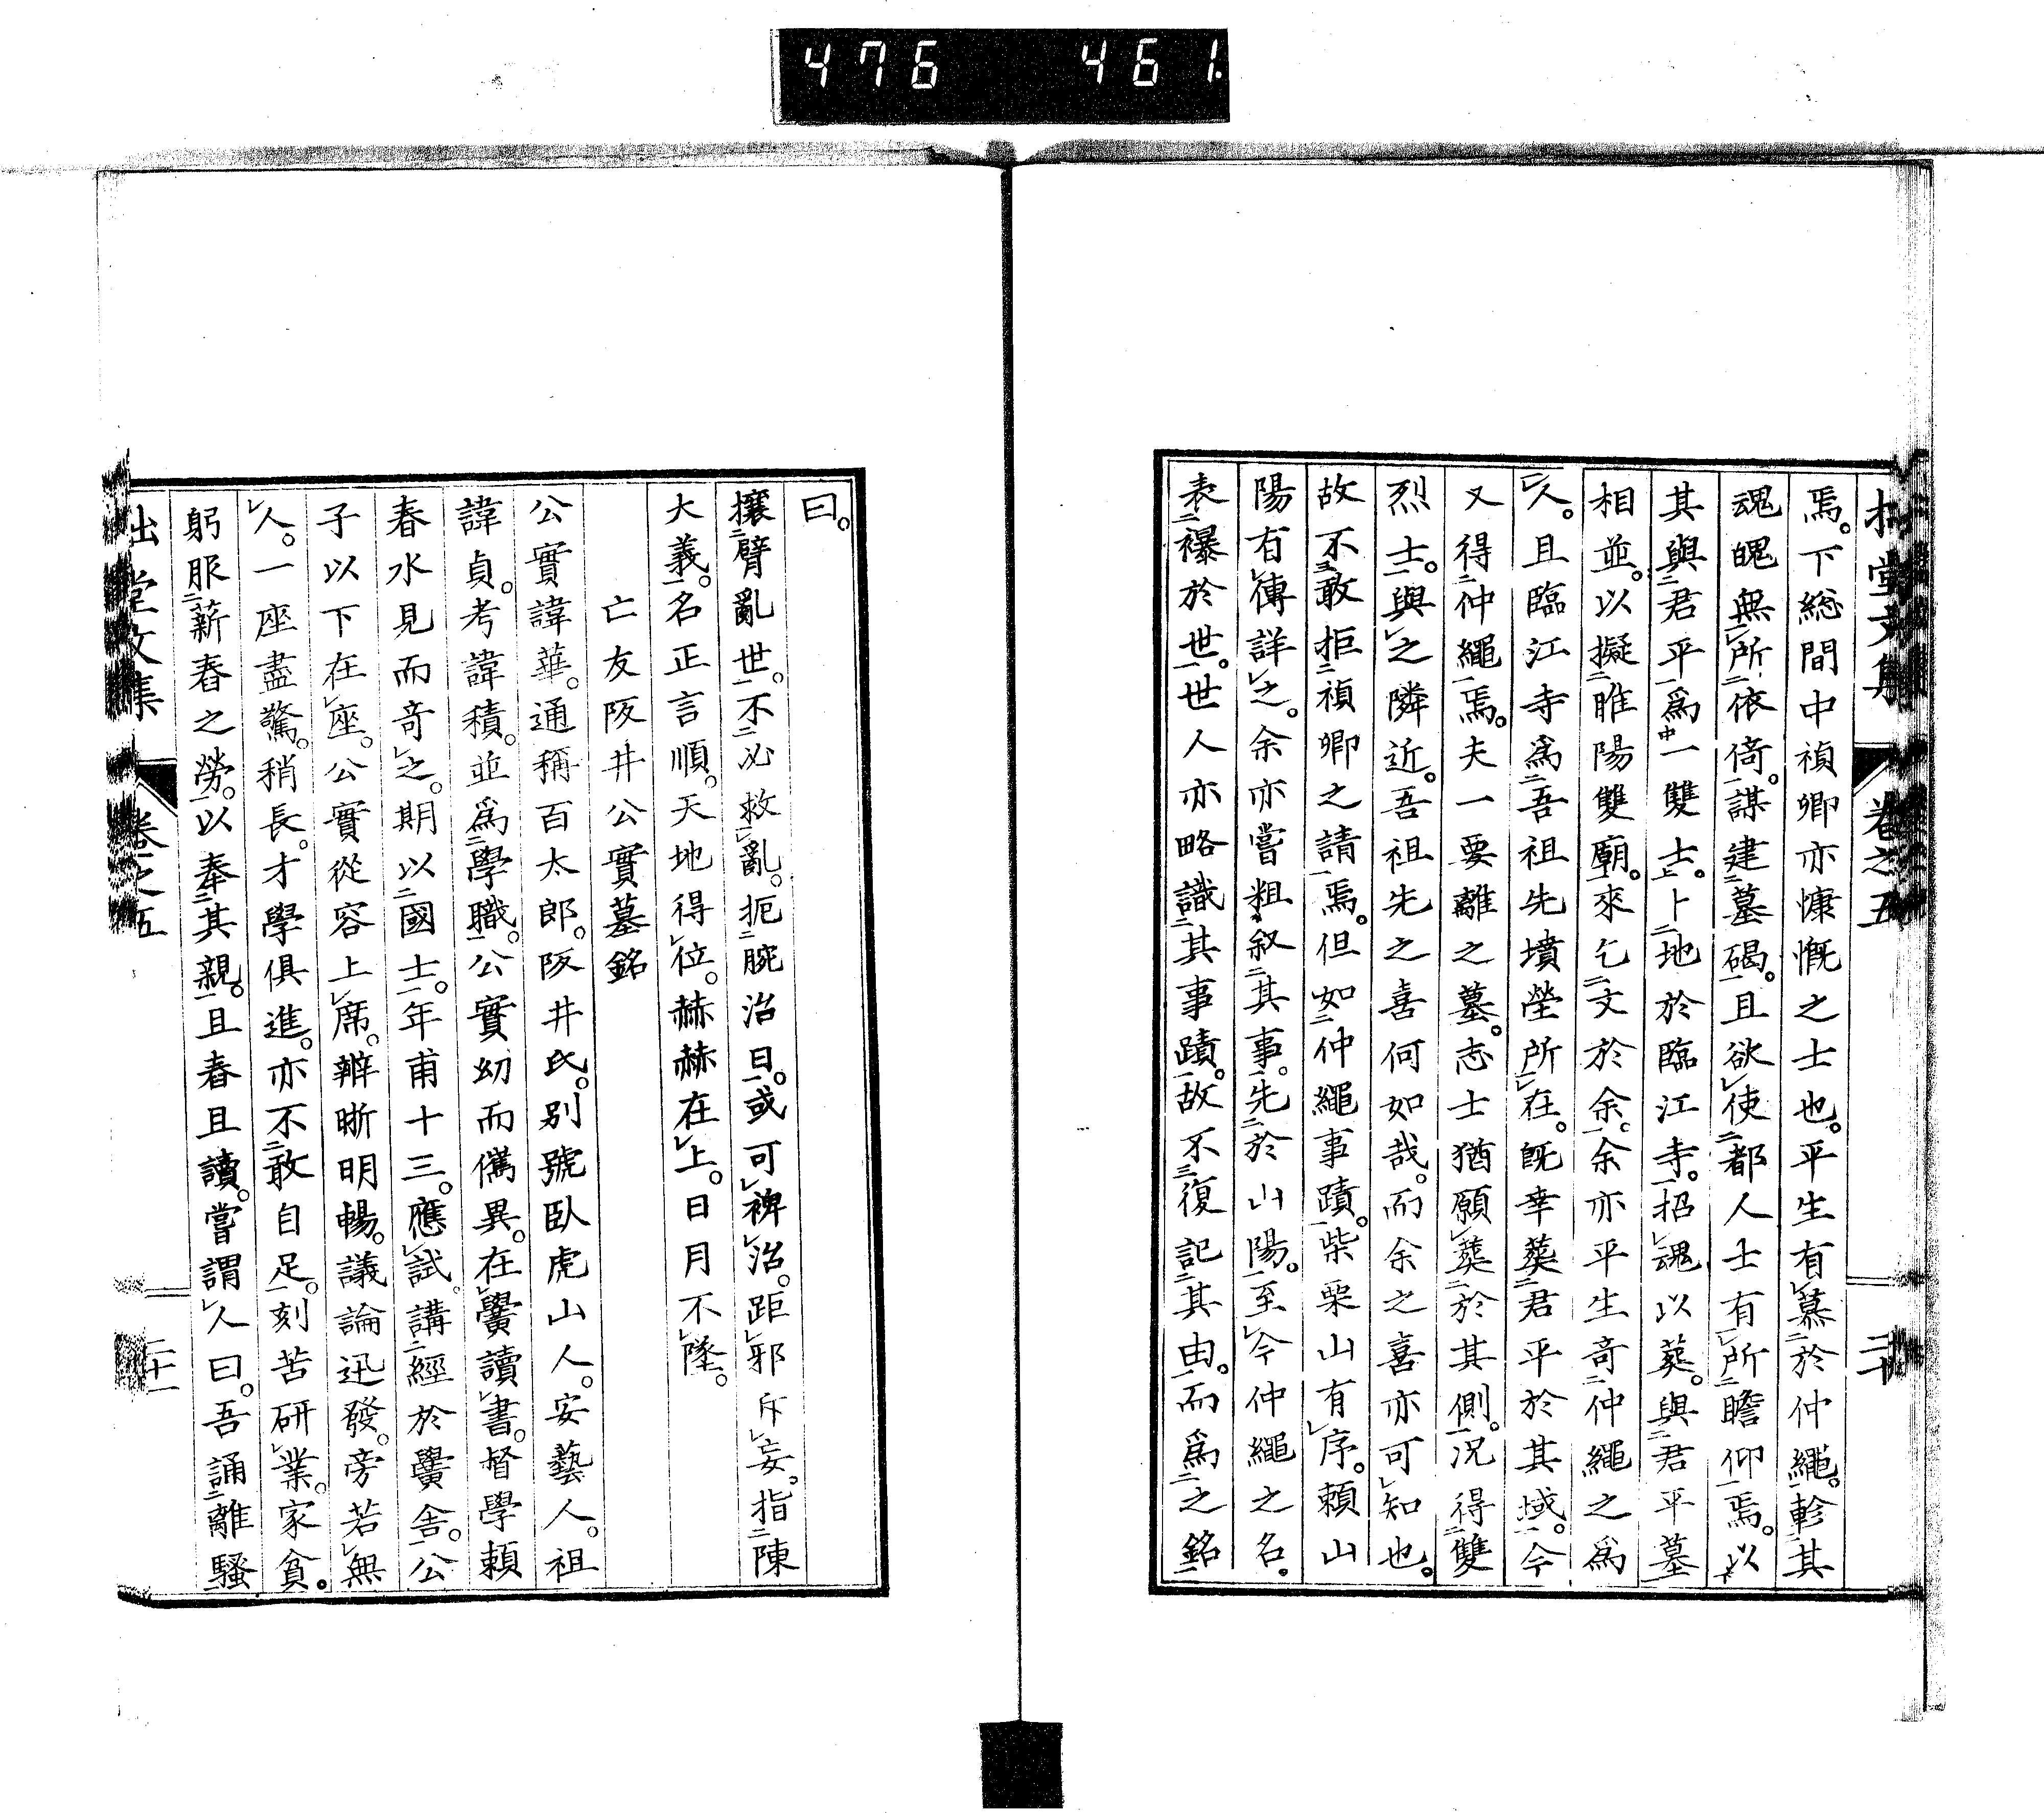 476 461
焉。下総間中禎卿亦慷慨之士也。平生有慕於仲繩。軫其
魂魄無所依倚。謀建墓碣。且欲使都人士有所瞻仰焉。以
其與君平爲一雙士。卜地於臨江寺。招魂以葬。與君平墓
相並。以擬睢陽雙廟。來乞文於余。余亦平生奇仲繩之爲
人。且臨江寺爲吾祖先墳塋所在。既幸葬君平於其域。今
又得仲繩焉。夫一要離之墓。志士猶願葬於其側。況得雙
烈士。與之隣近。吾祖先之喜何如哉。而余之喜亦可知也。
故不敢拒禎卿之請焉。但如仲繩事蹟。柴栗山有序。頼山
陽有傳詳之。余亦嘗粗叙其事。先於山陽。至今仲繩之名。
表襮於世。世人亦略識其事蹟。故不復記其由。而爲之銘
堂文集 卷之五 二十
曰。
攘臂亂世。不必救亂。扼腕治日。或可裨治。距邪斥妄。指陳
大義。名正言順。天地得位。赫赫在上。日月不墜。
亡友阪井公實墓銘
公實諱華。通稱百太郎。阪井氏。別號臥虎山人。安藝人。祖
諱貞。考諱積。並爲學職。公實幼而儁異。在黌讀書。督學頼
春水見而奇之。期以國士。年甫十三。應試講經於黌舎。公
子以下在座。公實從容上席。辨晰明暢。議論迅發。旁若無
人。一座盡驚。稍長。才學倶進。亦不敢自足。刻苦研業。家貧。
躬服薪舂之勞。以奉其親。且舂且讀。嘗謂人曰。吾誦離騷
堂文集 卷之五 二十一